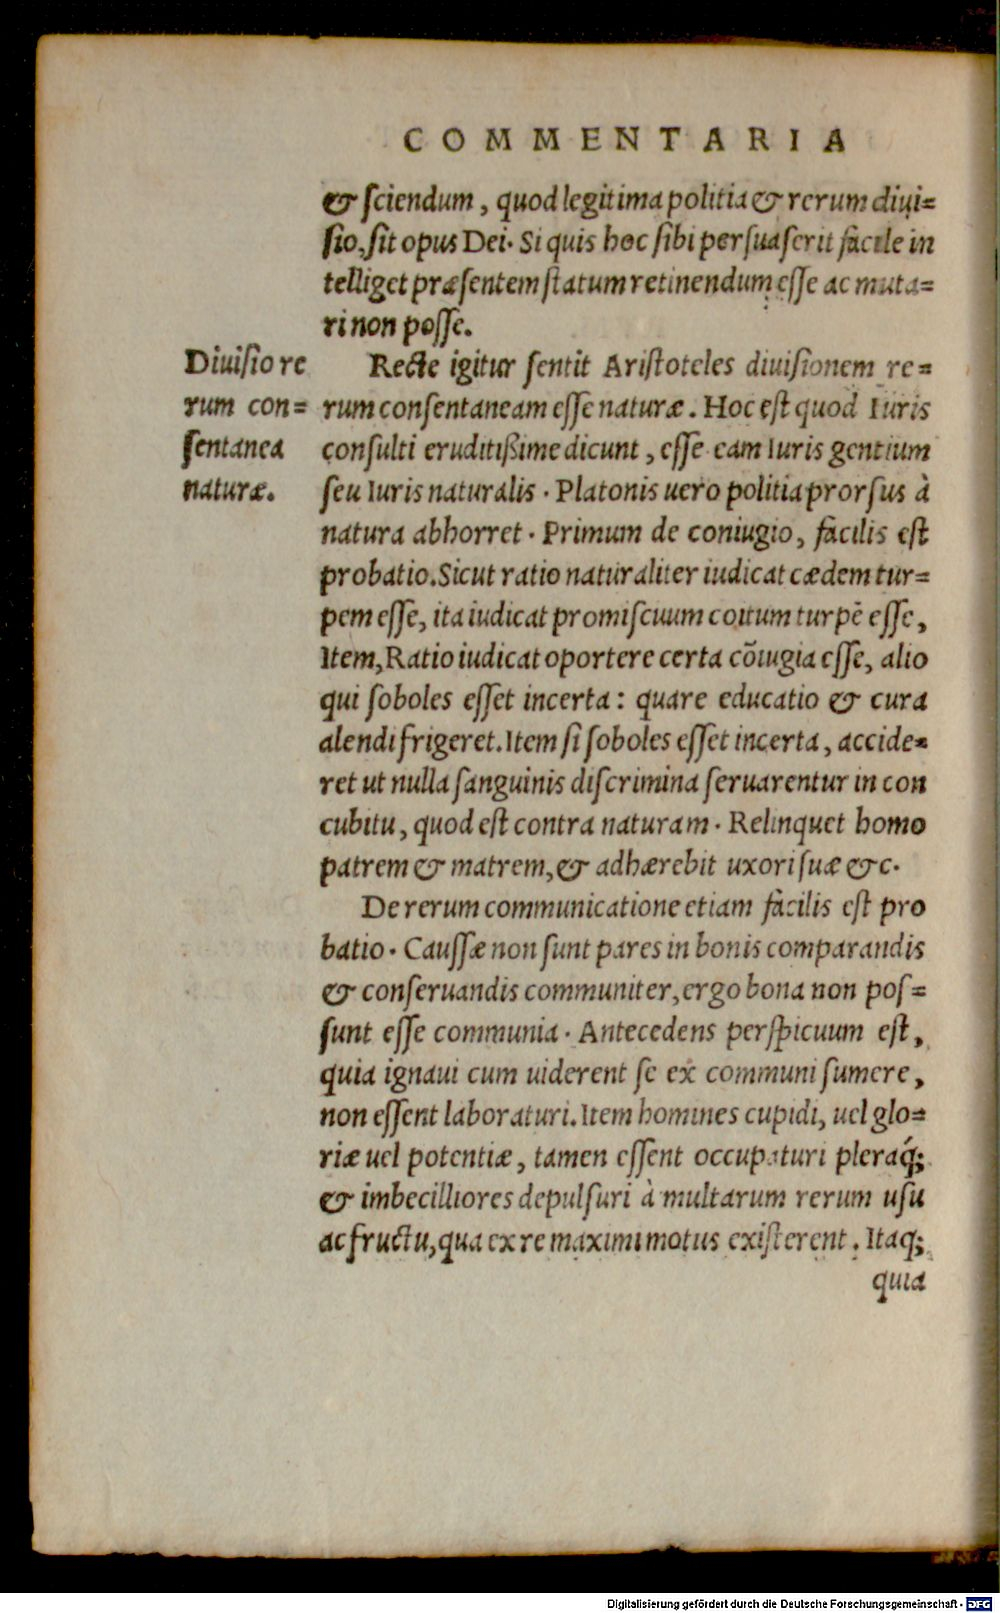 COMMENTARIA
& sciendum, quod legitima politia & rerum diui=
sio, sit opus Dei. Si quis hoc sibi persuaserit facile in
telliget præsentem statum retinendum esse ac muta=
ri non posse.
Diuisio re
rum con=
sentanea
naturæ.
Recte igitur sentit Aristoteles diuisionem re=
rum consentaneam esse naturæ. Hoc est quod Iuris
consulti eruditißime dicunt, esse eam Iuris gentium
seu Iuris naturalis. Platonis uero politia prorsus à
natura abhorret. Primum de coniugio, facilis est
probatio. Sicut ratio naturaliter iudicat cædem tur=
pem esse, ita iudicat promiscuum coitum turpẽ esse,
Item, Ratio iudicat oportere certa cõiugia esse, alio
qui soboles esset incerta: quare educatio & cura
alendi frigeret. Item si soboles esset incerta, accide=
ret ut nulla sanguinis discrimina seruarentur in con
cubitu, quod est contra naturam. Relinquet homo
patrem & matrem, & adhærebit uxori suæ &c.
De rerum communicatione etiam facilis est pro
batio. Caussæ non sunt pares in bonis comparandis
& conseruandis communiter, ergo bona non pos=
sunt esse communia. Antecedens perspicuum est,
quia ignaui cum uiderent se ex communi sumere,
non essent laboraturi. Item homines cupidi, uel glo=
riæ uel potentiæ, tamen essent occupaturi pleraq́;
& imbecilliores depulsuri à multarum rerum usu
ac fructu, qua ex re maximi motus existerent. Itaq;
quia
Digitalisierung gefördert durch die Deutsche Forschungsgemeinschaft - DFG